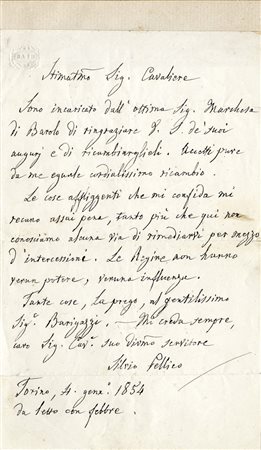 Stimatmo Sig. Cavaliere
Sono incaricato dall'ottima Sig. Marchesa
di Barolo di ringraziare V. S. de' suoi
auguri e di ricambiarglieli. Accetti pure
da me eguale cordialissimo ricambio.
Le cose affliggenti che mi confida mi
recano assai pena, tanto più che qui non
conosciamo alcuna via di rimediarvi per mezzo
d'intercessione. Le Regine non hanno
verun potere, veruna influenza.
Tante cose, la prego, al gentilissimo
Sigr. Barigazzi. — Mi creda sempre,
caro Sig. Cavr. suo divmo servitore
Silvio Pellico
Torino, 4. genn. 1854
da letto con febbre.